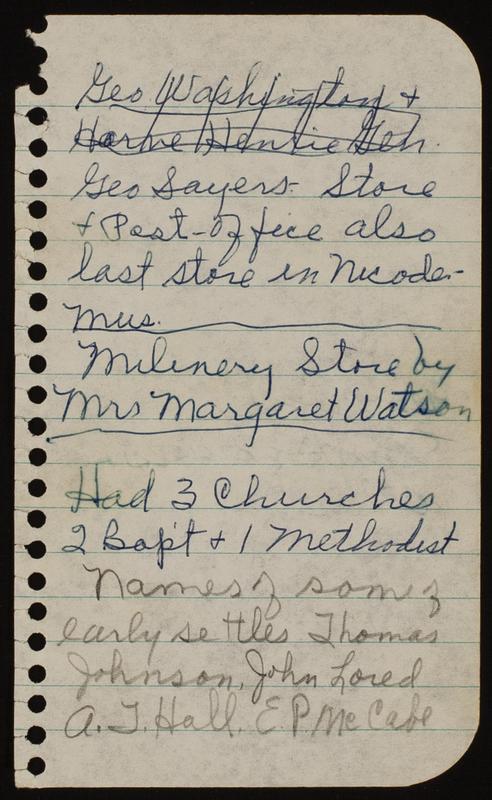 Geo Washington +
Horne Henrie Gen.
Geo Sayers- Store
+ Post-office also
last store in Nicode-
mus.
Milinery Store by
Mrs Margaret Watson
Had 3 Churches
2 Bapt + 1 Methodist
Names of som of
early settles Thomas
Johnson, John Lored
A. T. Hall, E. P. McCabe